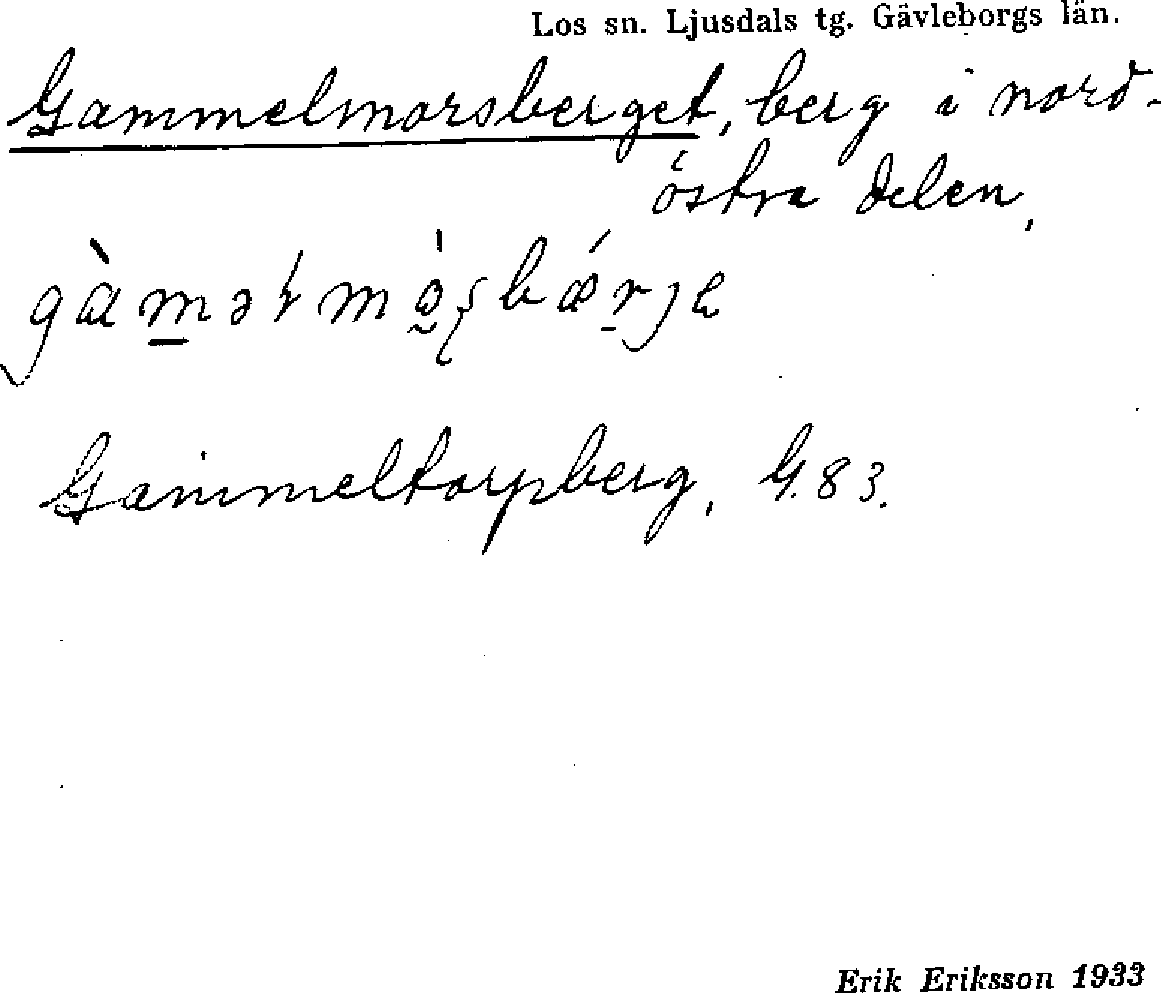 Los sn. Ljusdals tg. Gävleborgs län.
Gammelmorsberget, berg i nord-
östra delen,
Gammeltorpberg, G. 83.
Erik Eriksson 1933